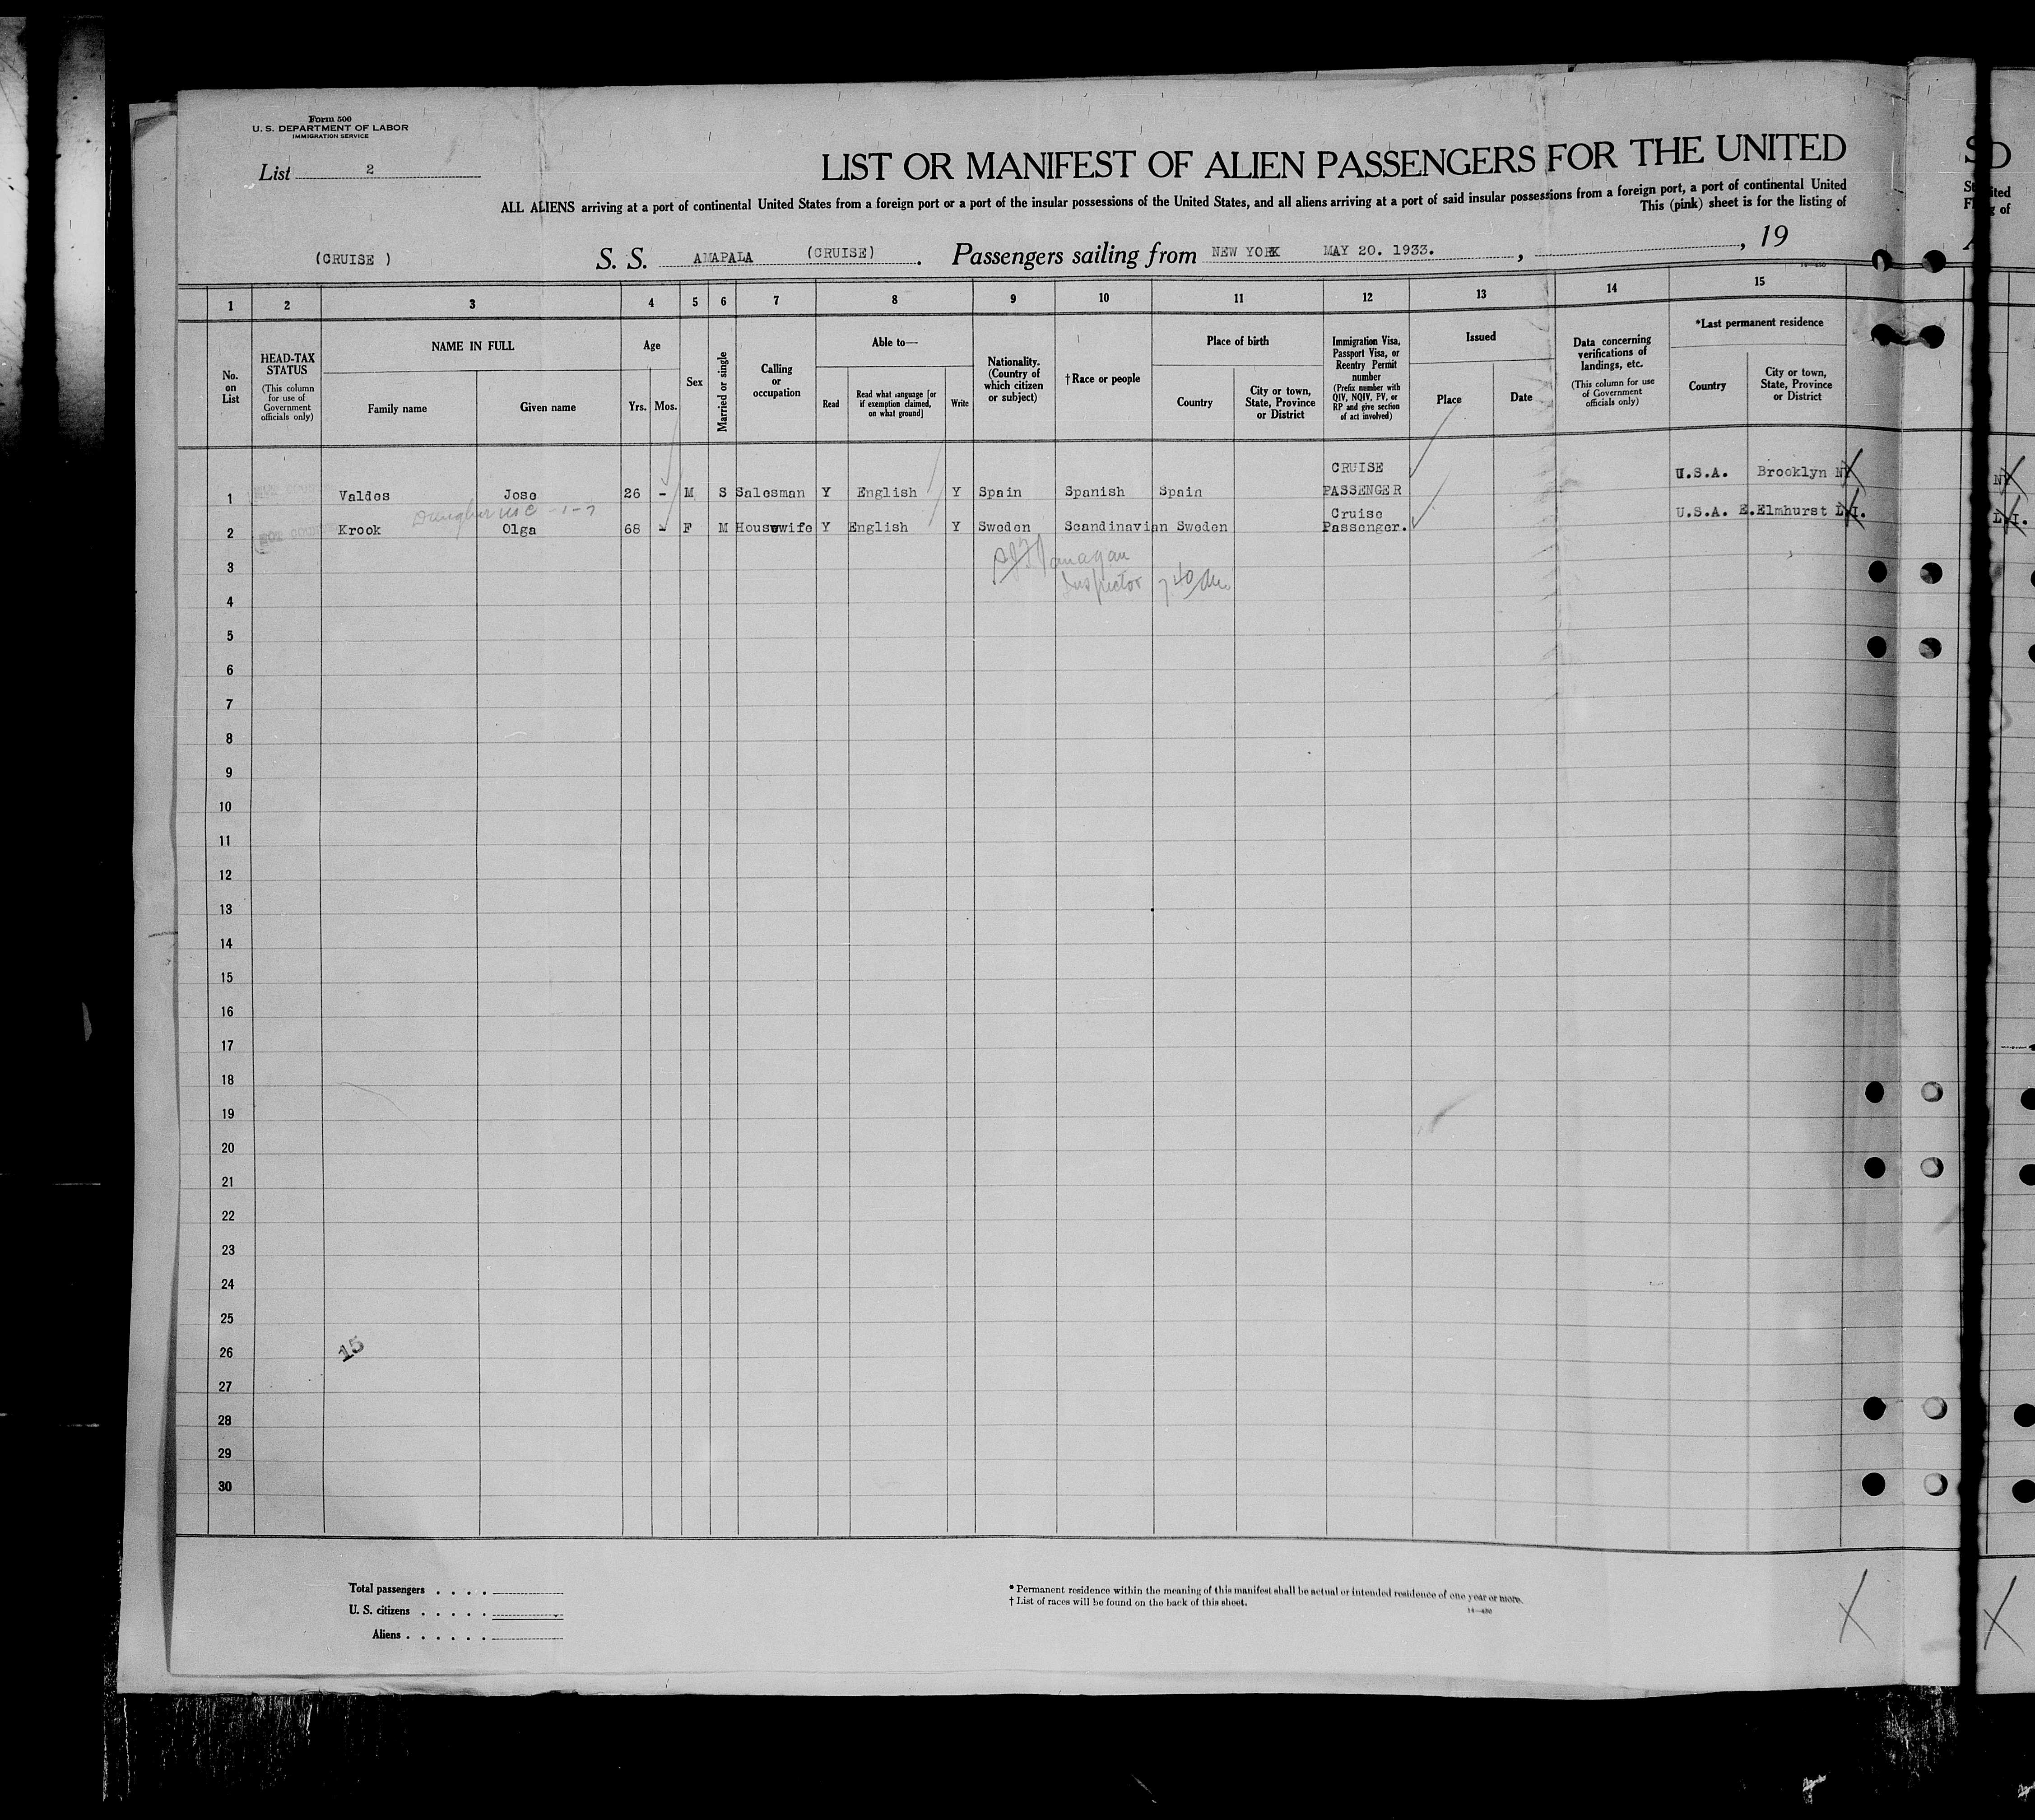 Form 500
U. S. DEPARTMENT OF LABOR
IMMIGRATION SERVICE
List 2
LIST OR MANIFEST OF ALIEN PASSENGERS FOR THE UNITED
ALL ALIENS arriving at a port of continental United States from a foreign port or a port of the insular possessions of the United States, and all aliens arriving at a port of said insular possessions from a foreign port, a port of continental United
This (pink) sheet is for the listing of
(CRUISE ) S. S. AMAPALA (CRUISE) . Passengers sailing from NEW YORK MAY 20. 1933. , , 19
1 2 3 4 5 6 7 8 9 10 11 12 13 14 15
No. on List
HEAD-TAX STATUS
(This column for use of Government officials only)
NAME IN FULL
Family name Given name
Age
Yrs. Mos.
Sex
Married or single
Calling or occupation
Able to—
Read
Read what language [or if exemption claimed, on what ground]
Write
Nationality. (Country of which citizen or subject)
†Race or people
Place of birth
Country
City or town, State, Province or District
Immigration Visa, Passport Visa, or Reentry Permit number
(Prefix number with QIV, NQIV, PV, or RP and give section of act involved)
Issued
Place Date
Data concerning verifications of landings, etc.
(This column for use of Government officials only)
*Last permanent residence
Country
City or town, State, Province or District
1 Valdes Jose 26 - M S Salesman Y English Y Spain Spanish Spain CRUISE PASSENGER U.S.A. Brooklyn NY
2 Krook Olga 68 - F M Housewife Y English Y Sweden Scandinavian Sweden Cruise Passenger. U.S.A. E.Elmhurst L.I.
Inspector
3
4
5
6
7
8
9
10
11
12
13
14
15
16
17
18
19
20
21
22
23
24
25
26
15
27
28
29
30
Total passengers . . . .
U. S. citizens . . . . .
Aliens . . . . . .
* Permanent residence within the meaning of this manifest shall be actual or intended residence of one year or more.
† List of races will be found on the back of this sheet.
14—430